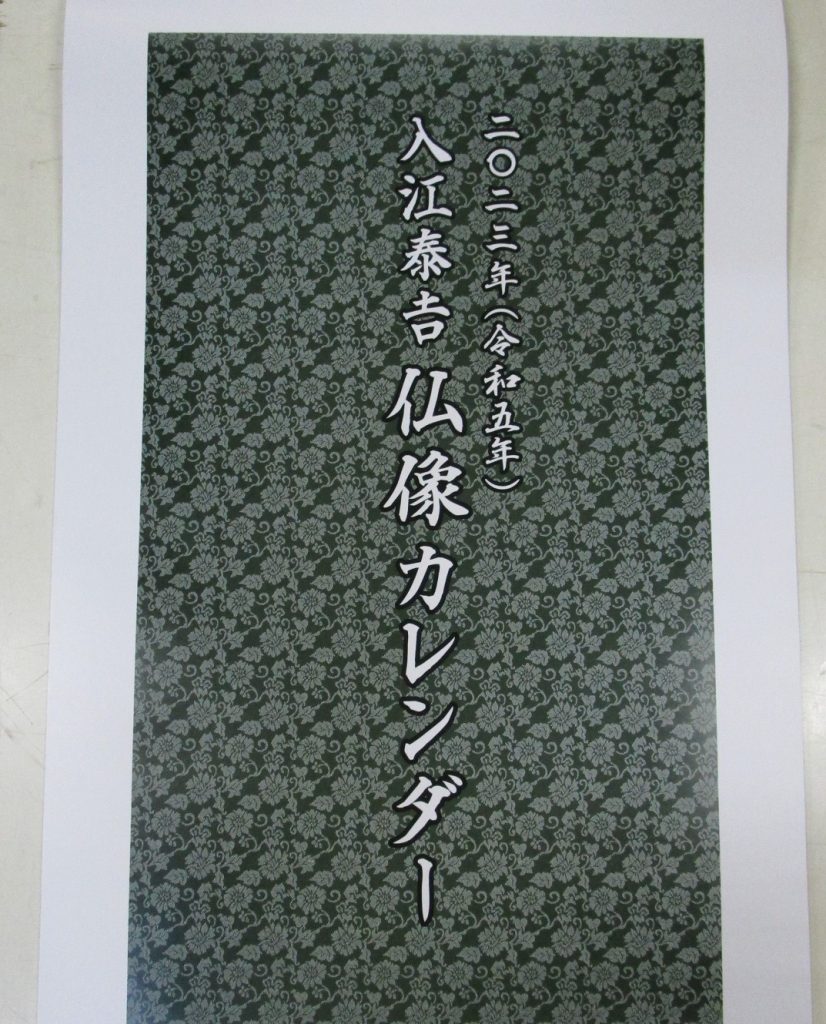 二〇二三年(令和五年)
入江泰𠮷仏像カレンダー